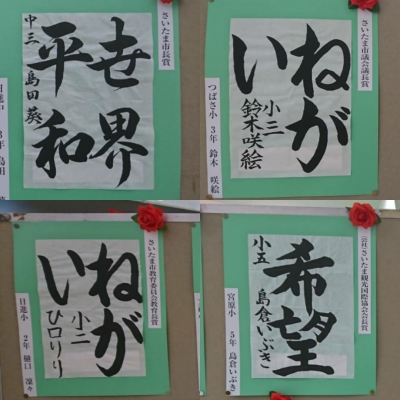 さいたま市長賞
世界
平和
中三 島田葵
日進中 3年 島田 葵
さいたま市議会議長賞
ねが
い
小三 鈴木咲絵
つばさ小 3年 鈴木 咲絵
さいたま市教育委員会教育長賞
ねが
い
小二 ひ口りり
日進小 2年 樋口 凜々
(公社)さいたま観光国際協会会長賞
希望
小五 島倉いぶき
宮原小 5年 島倉いぶき